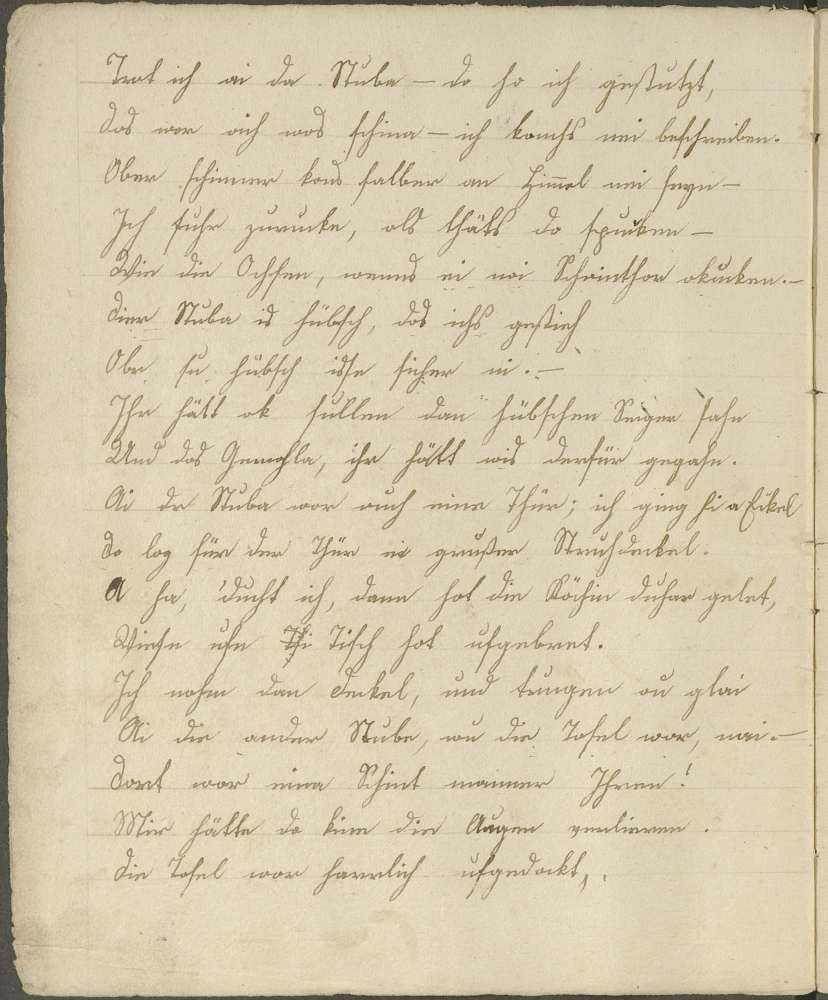 Trat ich ai da Stuba – do ho ich gestutzt,
Das war aich was schina – ich konchs nei beschreiben.
Ober schinner kons salber an Himmel nei seyn –
Ich fuhr zurucke, als thäts do spucken –
Wie die Ochsen, wenns ei nei Scheinthor okucken. –
Dier Stuba is hübsch, das ichs gestieh
Obr su hübsch isse sicher ni. –
Ihr hätt ok sullen dan hübschen Seiger sahn
Und das Gemahla, ihr hätt wis derfür gegahn.
Ai dr Stuba war auch eine Thür; ich ging hi a Eikel
Do log für der Thür ei grußer Struhdeckel.
A ha, ducht ich, dann hot die Köchin duhar gelet,
Wiese ufn Tisch hot ufgebret.
Ich nahm dan Deckel, und trugen ou glai
Ai die ander Stube, wu die Tofel war, nai. –
Dort war eina Schint manner Ihren!
Mir hätte do kinn die Augen verlieren.
Die Tofel war harrlich ufgedackt,